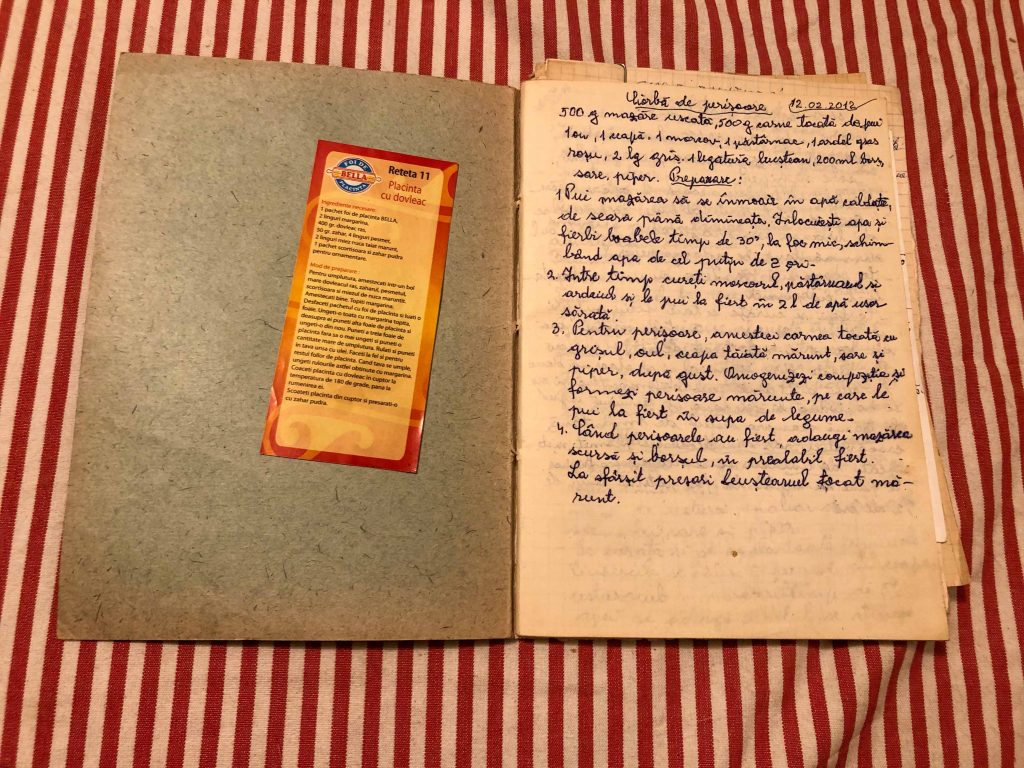 FOI DE
BELLA
PLACINTA
Reteta 11
Placinta
cu dovleac
Ingrediente necesare:
1 pachet foi de placinta BELLA,
2 linguri margarina,
400 gr. dovleac ras,
50 gr. zahar, 4 linguri pesmet,
2 linguri miez nuca taiat marunt,
1 pachet scortisoara si zahar pudra
pentru ornamentare.
Mod de preparare :
Pentru umplutura, amestecati intr-un bol
mare dovleacul ras, zaharul, pesmetul,
scortisoara si miezul de nuca maruntit.
Amestecati bine. Topiti margarina.
Desfaceti pachetul cu foi de placinta si luati o
foaie. Ungeti-o toata cu margarina topita,
deasupra ei puneti alta foaie de placinta si
ungeti-o din nou. Puneti a treia foaie de
placinta fara sa o mai ungeti si puneti o
cantitate mare de umplutura. Rulati si puneti
in tava unsa cu ulei. Faceti la fel si pentru
restul foilor de placinta. Cand tava se umple,
ungeti rulourile astfel obtinute cu margarina.
Coaceti placinta cu dovleac in cuptor la
temperatura de 180 de grade, pana la
rumenirea ei.
Scoateti placinta din cuptor si presarati-o
cu zahar pudra.
Ciorbă de perișoare 12.02.2012
500 g mazăre uscată, 500 g carne tocată de pui
1 ou, 1 ceapă, 1 morcov, 1 păstârnac, 1 ardei gras
roșu, 2 lg griș, 1 legătură leuștean, 200 ml borș
sare, piper. Preparare:
1 Pui mazărea să se înmoaie în apă caldută,
de seara până dimineața. Înlocuiești apa și
fierbi boabele timp de 30', la foc mic, schim-
bând apa de cel puțin de 2 ori.
2. Între timp cureți morcovul, păstârnacul și
ardeiul și le pui la fiert în 2 l de apă ușor
sărată
3. Pentru perișoare, amesteci carnea tocată cu
grișul, oul, ceapa tăiată mărunt, sare și
piper, după gust. Omogenizezi compoziția și
formezi perișoare mărunte, pe care le
pui la fiert în supa de legume.
4. Când perișoarele au fiert, adaugi mazărea
scursă și borșul, în prealabil fiert.
La sfârșit presari leușteanul tocat mă-
runt.